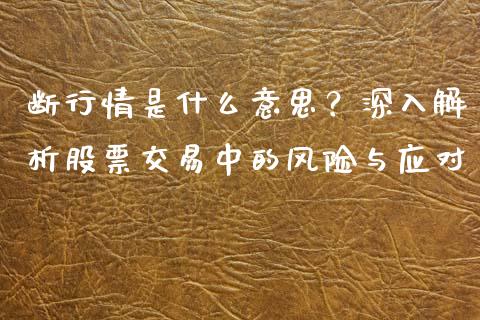 断行情是什么意思？深入解
析股票交易中的风险与应对